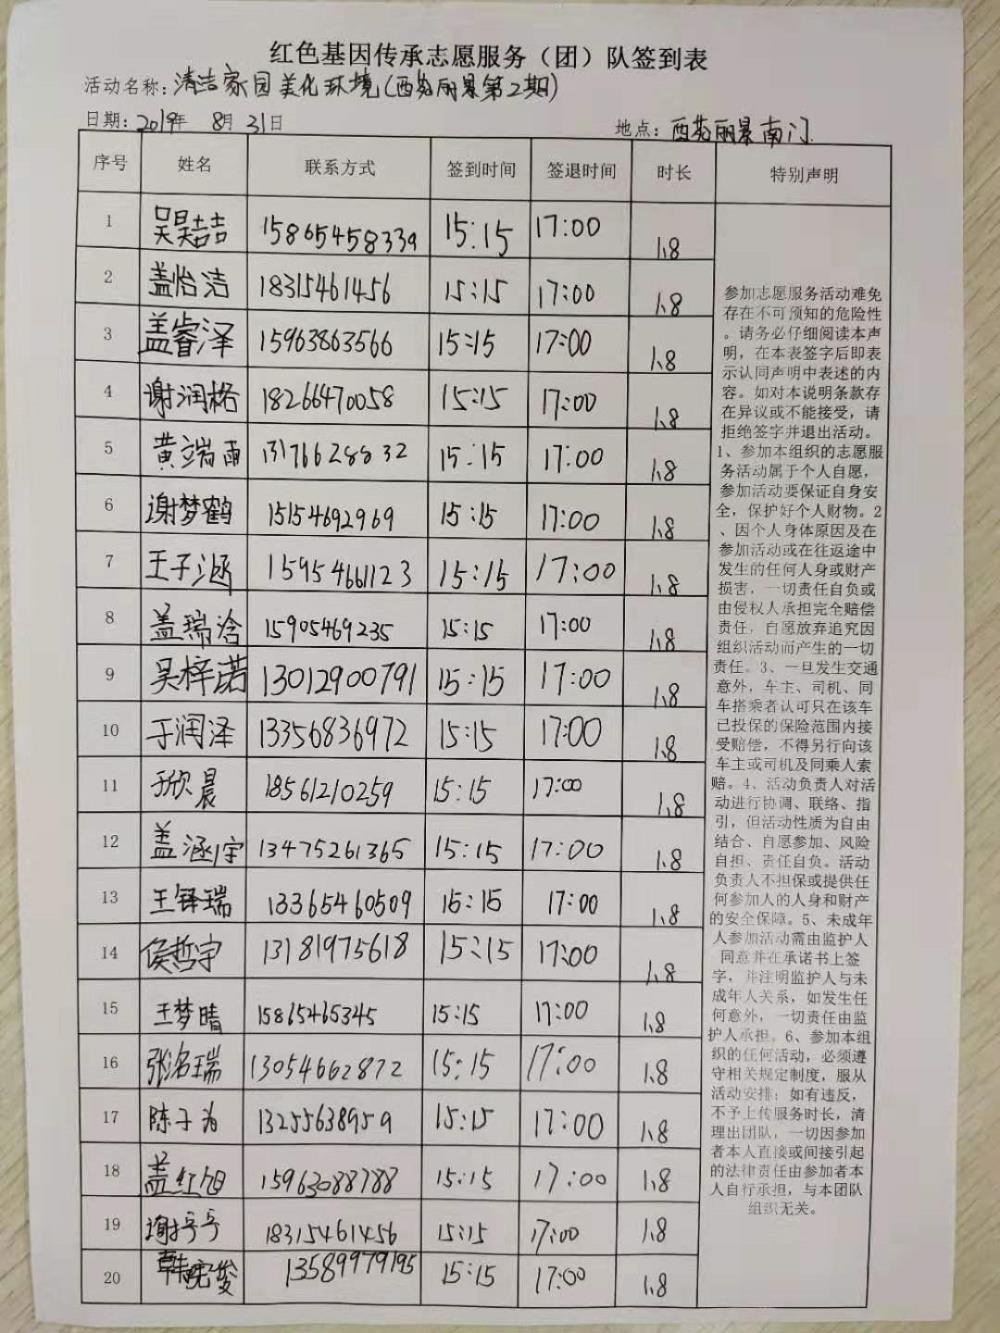 红色基因传承志愿服务（团）队签到表
活动名称：清洁家园美化环境(西苑丽景第2期)
日期：2019年 8月31日 地点：西苑丽景南门
序号 姓名 联系方式 签到时间 签退时间 时长 特别声明
1 吴昊喆 15865458339 15:15 17:00 1.8
2 盖怡洁 18315461456 15:15 17:00 1.8
3 盖睿泽 15963863566 15:15 17:00 1.8
4 谢润格 18266470058 15:15 17:00 1.8
5 黄端雨 13176628832 15:15 17:00 1.8
6 谢梦鹤 15154692969 15:15 17:00 1.8
7 王子涵 15954661123 15:15 17:00 1.8
8 盖瑞涵 15905469235 15:15 17:00 1.8
9 吴梓诺 13012900791 15:15 17:00 1.8
10 于润泽 13356836972 15:15 17:00 1.8
11 于欣晨 18561210259 15:15 17:00 1.8
12 盖涵宇 13475261365 15:15 17:00 1.8
13 王铎瑞 13365460509 15:15 17:00 1.8
14 侯哲宇 13181975618 15:15 17:00 1.8
15 王梦晴 15865465345 15:15 17:00 1.8
16 张洺瑞 13054662872 15:15 17:00 1.8
17 陈子为 13255638959 15:15 17:00 1.8
18 盖红旭 15963088788 15:15 17:00 1.8
19 谢 18315461456 15:15 17:00 1.8
20 韩晓俊 13589979195 15:15 17:00 1.8
参加志愿服务活动难免
存在不可预知的危险性
。请务必仔细阅读本声
明，在本表签字后即表
示认同声明中表述的内
容。如对本说明条款存
在异议或不能接受，请
拒绝签字并退出活动。
1、参加本组织的志愿服
务活动属于个人自愿，
参加活动要保证自身安
全，保护好个人财物。2
、因个人身体原因及在
参加活动或在往返途中
发生的任何人身或财产
损害，一切责任自负或
由侵权人承担完全赔偿
责任，自愿放弃追究因
组织活动而产生的一切
责任。3、一旦发生交通
意外，车主、司机、同
车搭乘者认可只在该车
已投保的保险范围内接
受赔偿，不得另行向该
车主或司机及同乘人索
赔。4、活动负责人对活
动进行协调、联络、指
引，但活动性质为自由
结合、自愿参加、风险
自担、责任自负。活动
负责人不担保或提供任
何参加人的人身和财产
的安全保障。5、未成年
人参加活动需由监护人
同意并在承诺书上签
字，并注明监护人与未
成年人关系，如发生任
何意外，一切责任由监
护人承担。6、参加本组
织的任何活动，必须遵
守相关规定制度，服从
活动安排；如有违反，
不予上传服务时长，清
理出团队，一切因参加
者本人直接或间接引起
的法律责任由参加者本
人自行承担，与本团队
组织无关。